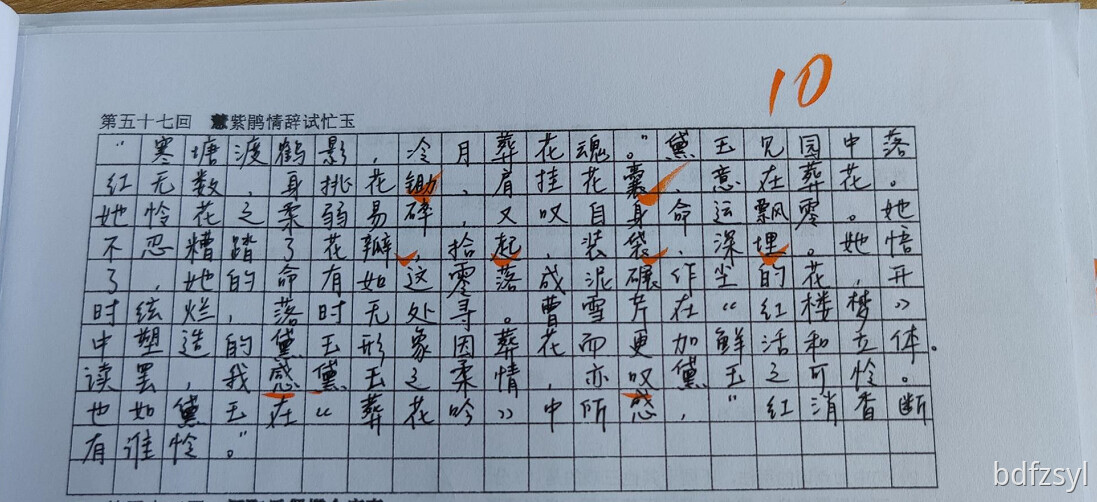 10
第五十七回 慧紫鹃情辞试忙玉
“寒塘渡鹤影，冷月葬花魂。”黛玉见园中落
红无数，身挑花锄，肩挂花囊，意在葬花。
她怜花之柔弱易碎，又叹自身命运飘零。她
不忍糟踏了花瓣，拾起，装袋，深埋。她悟
了，她的命有如这零落成泥碾作尘的花，开
时绚烂，落时无处寻。曹雪芹在《红楼梦》
中塑造的黛玉形象因葬花而更加鲜活和立体。
读罢，我感黛玉之柔情，亦叹黛玉之可怜。
也如黛玉在《葬花吟》中所感，“红消香断
有谁怜。”
bdfzsyl